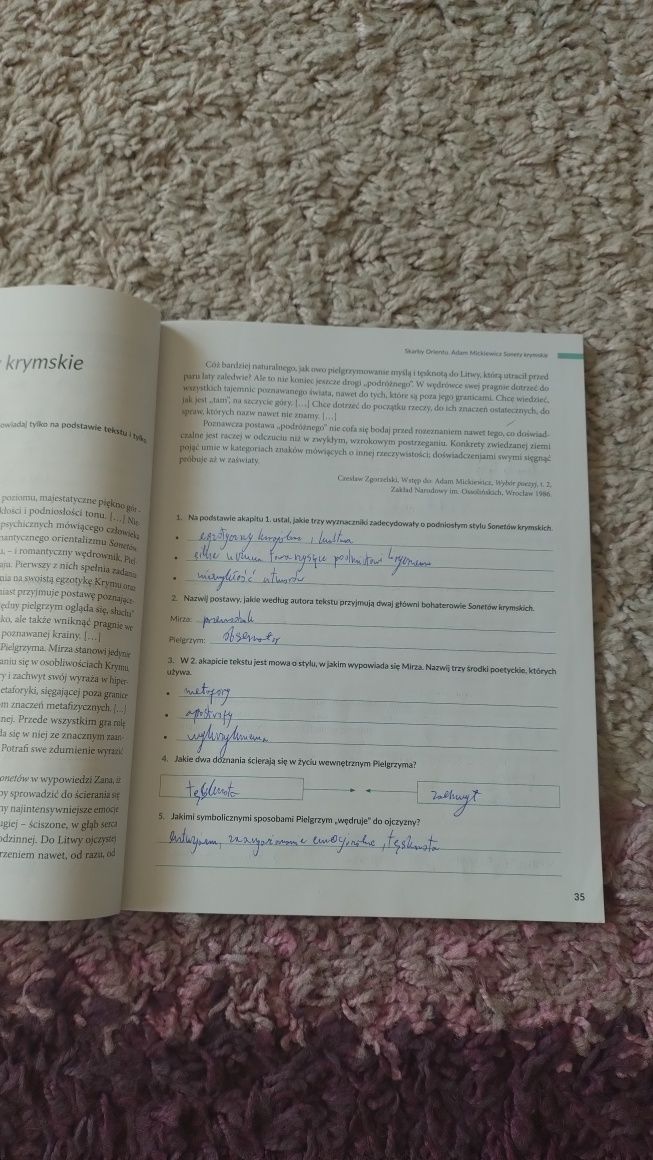 krymskie
owiadaj tylko na podstawie tekstu i tylko
poziomu, majestatyczne piękno gór-
kłości i podniosłości tonu. [...] Nie-
psychicznych mówiącego człowieka
mantycznego orientalizmu Sonetów
– i romantyczny wędrownik, Piel-
Pierwszy z nich spełnia zadania
nia na swoistą egzotykę Krymu oraz
miast przyjmuje postawę poznające-
pielgrzym ogląda się, słucha
ko, ale także wniknąć pragnie we
poznawanej krainy. [...]
Pielgrzyma. Mirza stanowi jedynie
aniu się w osobliwościach Krymu
y i zachwyt swój wyraża w hiper-
etaforyki, sięgającej poza granice
m znaczeń metafizycznych. [...]
nej. Przede wszystkim gra rolę
da się w niej ze znacznym zaan-
Potrafi swe zdumienie wyrazić
onetów w wypowiedzi Zana, iż
by sprowadzić do ścierania się
ny najintensywniejsze emocje
ugiej – ściszone, w głąb serca
odzinnej. Do Litwy ojczystej
rzeniem nawet, od razu, od
Skarby Orientu. Adam Mickiewicz Sonety krymskie
Cóż bardziej naturalnego, jak owo pielgrzymowanie myślą i tęsknotą do Litwy, którą utracił przed
paru laty zaledwie? Ale to nie koniec jeszcze drogi „podróżnego". W wędrówce swej pragnie dotrzeć do
wszystkich tajemnic poznawanego świata, nawet do tych, które są poza jego granicami. Chce wiedzieć,
jak jest „tam", na szczycie góry. [...] Chce dotrzeć do początku rzeczy, do ich znaczeń ostatecznych, do
spraw, których nazw nawet nie znamy. [...]
Poznawcza postawa „podróżnego" nie cofa się bodaj przed rozeznaniem nawet tego, co doświad-
czalne jest raczej w odczuciu niż w zwykłym, wzrokowym postrzeganiu. Konkrety zwiedzanej ziemi
pojąć umie w kategoriach znaków mówiących o innej rzeczywistości; doświadczeniami swymi sięgnąć
próbuje aż w zaświaty.
Czesław Zgorzelski, Wstęp do: Adam Mickiewicz, Wybór poezyj, t. 2,
Zakład Narodowy im. Ossolińskich, Wrocław 1986.
1. Na podstawie akapitu 1. ustal, jakie trzy wyznaczniki zadecydowały o podniosłym stylu Sonetów krymskich.
• i kultura
• towarzyszące
• utworów
2. Nazwij postawy, jakie według autora tekstu przyjmują dwaj główni bohaterowie Sonetów krymskich.
Mirza: przewodnik
Pielgrzym: obserwator
3. W 2. akapicie tekstu jest mowa o stylu, w jakim wypowiada się Mirza. Nazwij trzy środki poetyckie, których
używa.
• metafory
• apostrofy
• wykrzyknienia
4. Jakie dwa doznania ścierają się w życiu wewnętrznym Pielgrzyma?
tęsknota
zachwyt
5. Jakimi symbolicznymi sposobami Pielgrzym „wędruje" do ojczyzny?
entuzjazm, emocjonalne, tęsknota
35